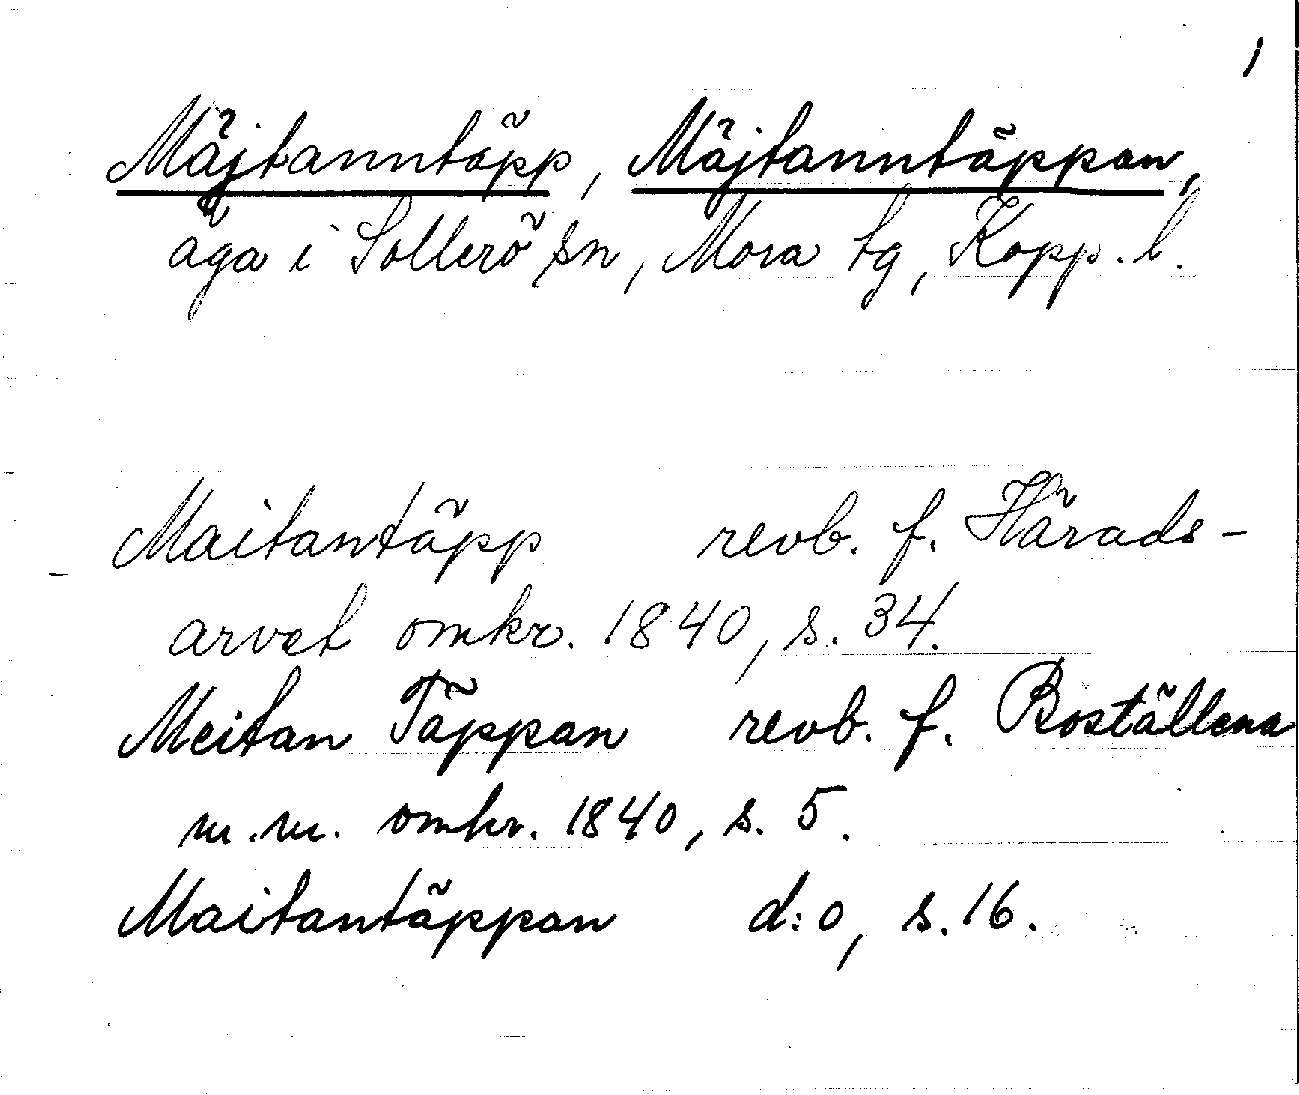 1
Mäjtanntäpp, Mäjtanntäppan,
äga i Sollerö sn, Mora tg, Kopp. l.
Maitantäpp revb. f. Härads-
arvet omkr. 1840, s. 34.
Meitan Täppan revb. f. Boställena
m.m. omkr. 1840, s. 5.
Maitantäppan d:o, s. 16.